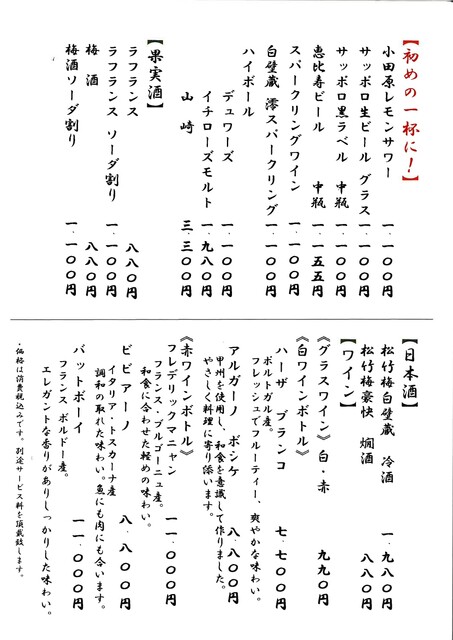 【初めの一杯に！】
小田原レモンサワー 一、一〇〇円
サッポロ生ビール グラス 一、一〇〇円
サッポロ黒ラベル 中瓶 一、一〇〇円
恵比寿ビール 中瓶 一、一五五円
スパークリングワイン 一、一〇〇円
白壁蔵 澪スパークリング 一、一〇〇円
ハイボール
デュワーズ 一、一〇〇円
イチローズモルト 一、九八〇円
山崎 三、三〇〇円
【果実酒】
ラフランス 八八〇円
ラフランス ソーダ割り 一、一〇〇円
梅酒 八八〇円
梅酒ソーダ割り 一、一〇〇円
【日本酒】
松竹梅白壁蔵 冷酒 一、九八〇円
松竹梅豪快 燗酒 八八〇円
【ワイン】
《グラスワイン》白・赤 九九〇円
《白ワインボトル》
ハーザ ブランコ 七、七〇〇円
ポルトガル産。
フレッシュでフルーティー、爽やかな味わい。
アルガーノ ボシケ 八、八〇〇円
甲州を使用し、和食を意識して作りました。
やさしく料理に寄り添います。
《赤ワインボトル》
フレデリックマニャン 一一、〇〇〇円
フランス・ブルゴーニュ産。
和食に合わせた軽めの味わい。
ビビアーノ 八、八〇〇円
イタリア・トスカーナ産
調和の取れた味わい。魚にも肉にも合います。
バットボーイ 一一、〇〇〇円
フランス ボルドー産。
エレガントな香りがありしっかりした味わい。
・価格は消費税込みです。別途サービス料を頂戴致します。